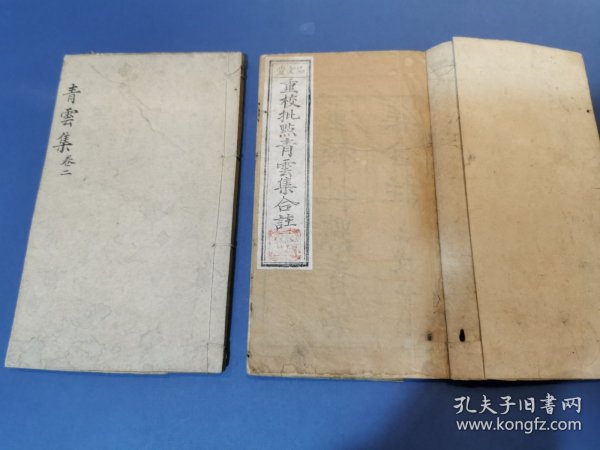 青雲集卷二
重校批點青雲集合註
孔夫子旧书网
www.kongfz.com